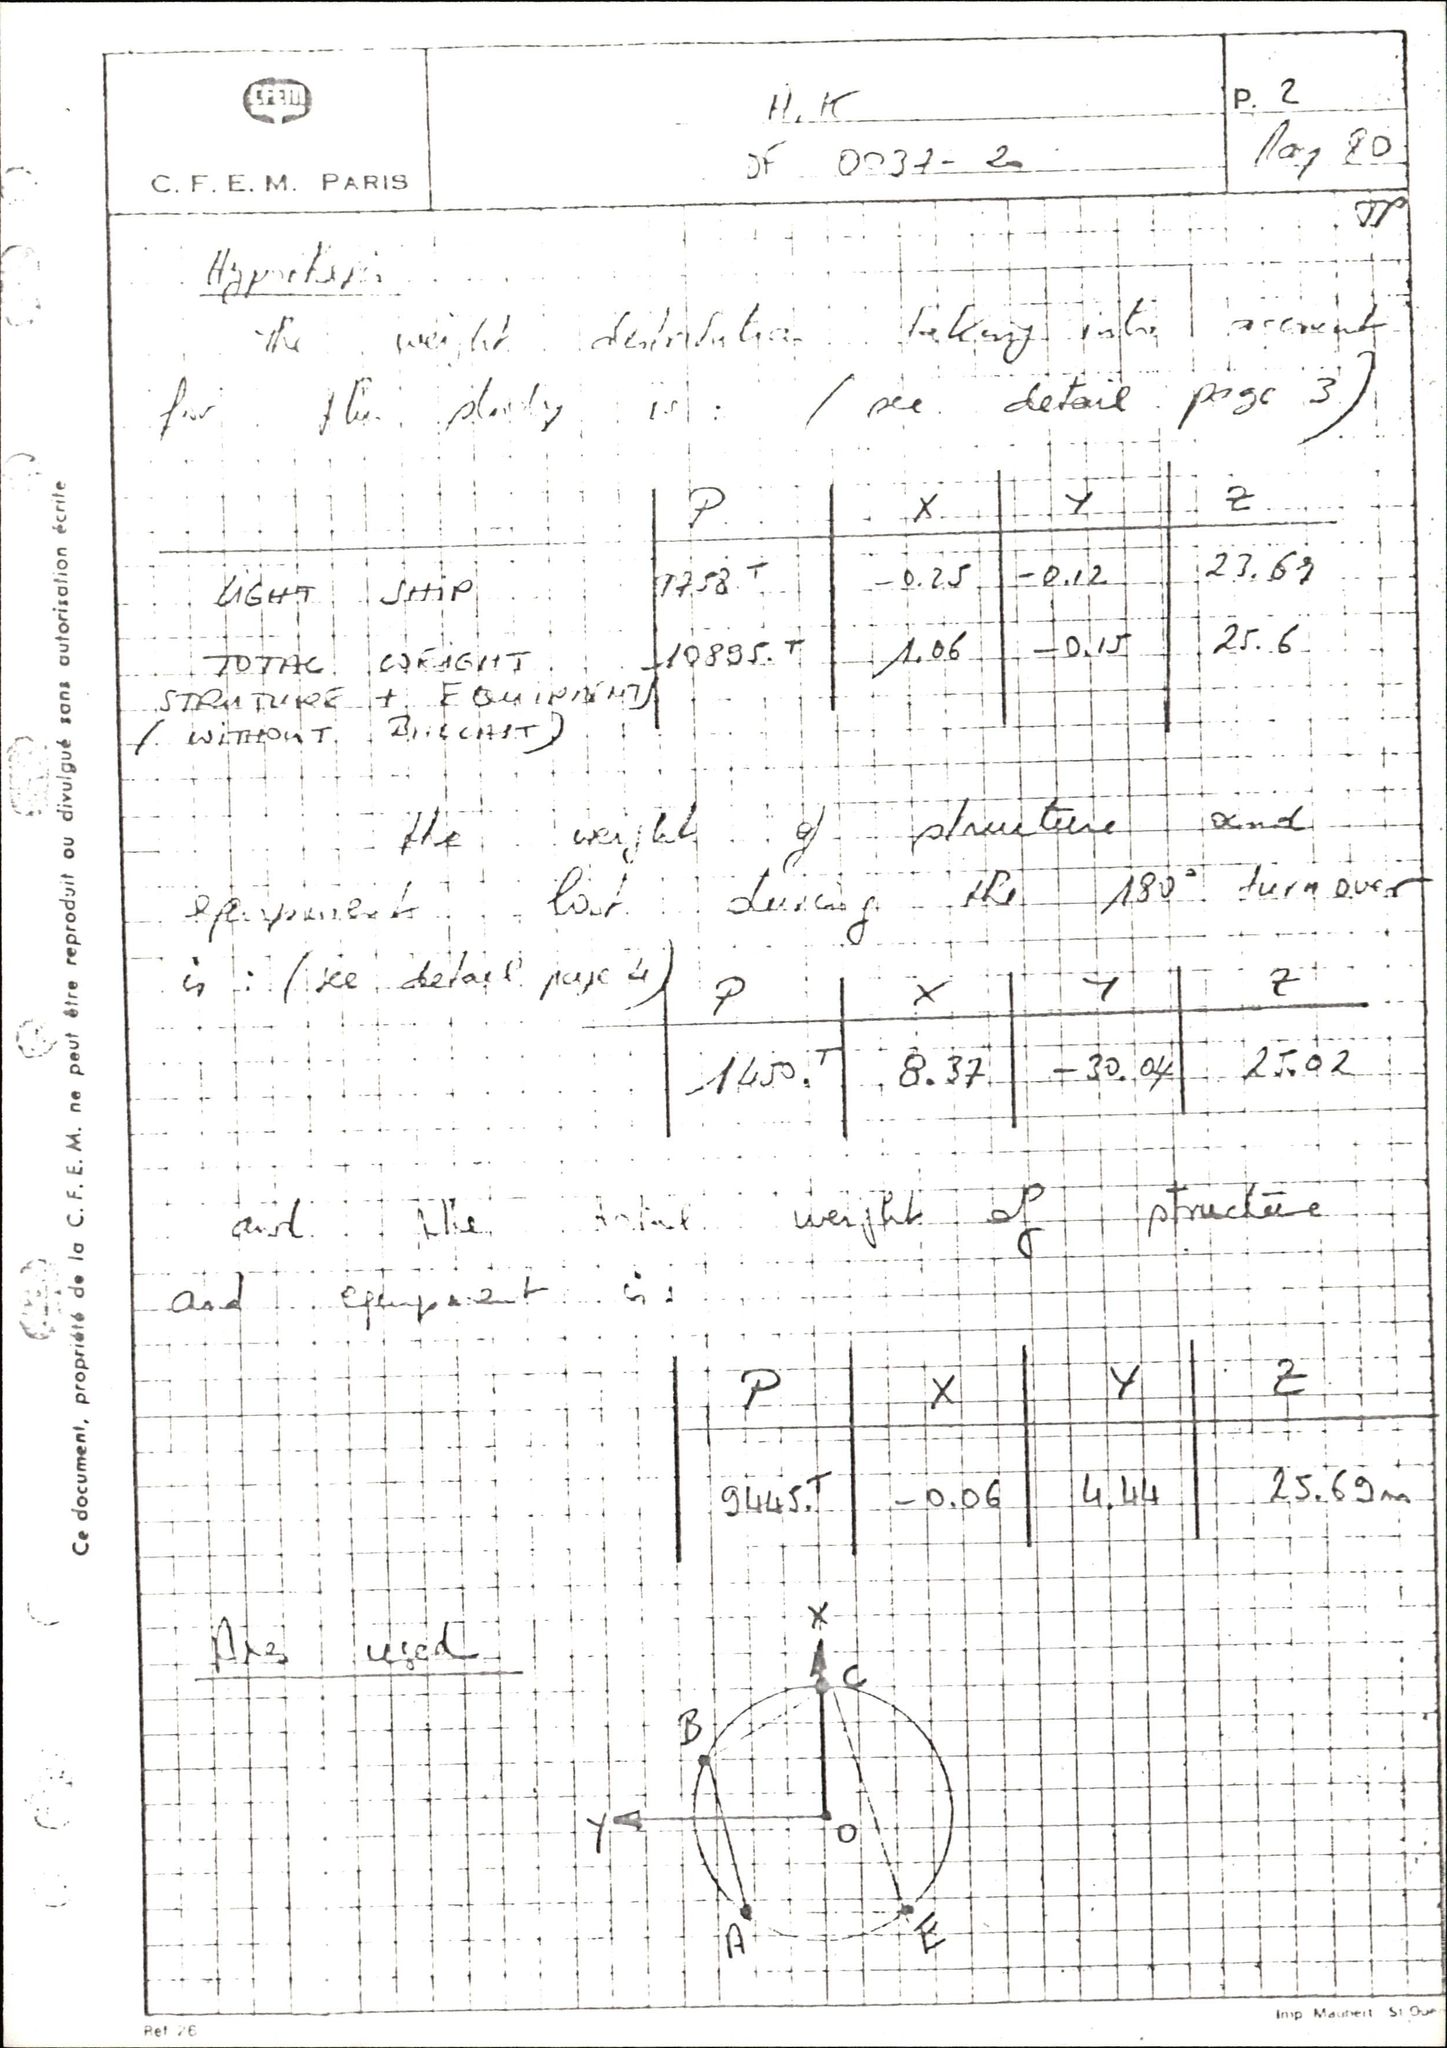 CFEM
C. F. E. M. PARIS
H. K
OF 0037-2
P. 2
May 80
Hypothesis
The weight distribution taking into account
for the study is : ( see detail page 3 )
P X Y Z
LIGHT SHIP 7758.T -0.25 -0.12 23.69
TOTAL WEIGHT 10895.T 1.06 -0.15 25.6
STRUTURE + EQUIPMENTS
( WITHOUT BALLAST )
the weight of structure and
equipment lost during the 180° turn over
is : (see detail page 4)
P X Y Z
1450.T 8.37 -30.04 25.02
and the total weight of structure
and equipment is :
P X Y Z
9445.T -0.06 4.44 25.69m
Axes used
X
C
B
Y
O
A
E
Ce document, propriété de la C. F. E. M. ne peut être reproduit ou divulgué sans autorisation écrite
Ref 26
Imp Maubert St Oue